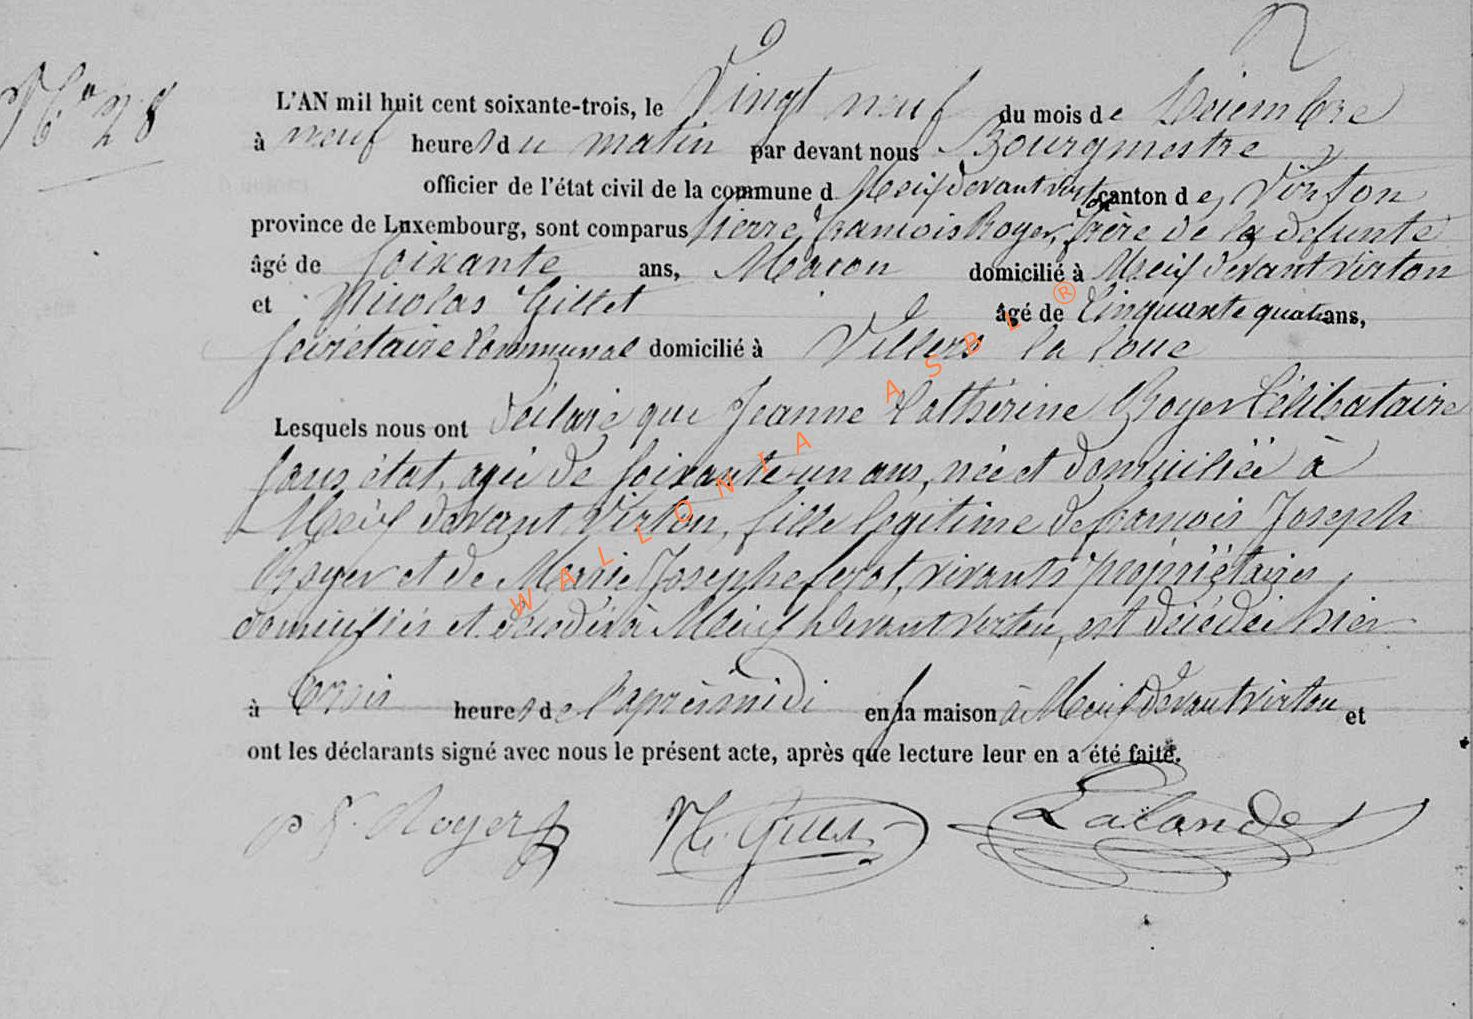 N° 28
L'AN mil huit cent soixante-trois, le Vingt neuf du mois de Décembre
à neuf heures du matin par devant nous Bourgmestre
officier de l'état civil de la commune d Meix devant Virton canton de Virton
province de Luxembourg, sont comparus Pierre françois Royer, frère de la défunte
âgé de soixante ans, Maçon domicilié à Meix devant virton
et Nicolas Gillet âgé de Cinquante quatre ans,
Secrétaire Communal domicilié à Villers la loue
Lesquels nous ont déclaré que Jeanne Catherine Royer Célibataire
sans état, agée de soixante-un ans, née et domiciliée à
Meix devant Virton, fille légitime de françois Joseph
Royer et de Marie Josephe vivants propriétaires,
domiciliés et décédés à Meix devant virton, est décédée hier
à trois heures de l'après midi en sa maison à Meix devant virton et
ont les déclarants signé avec nous le présent acte, après que lecture leur en a été faite.
p f. Royer N. Gillet Lalande
WALLONIA ASBL ®